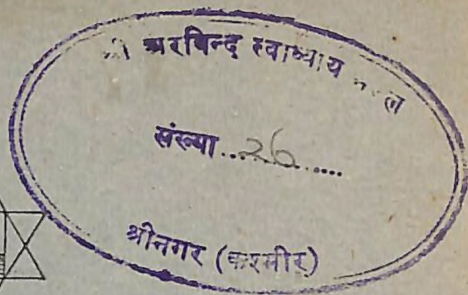 श्री अरविन्द स्वाध्याय मण्डल
संख्या......26......
श्रीनगर (कश्मीर)